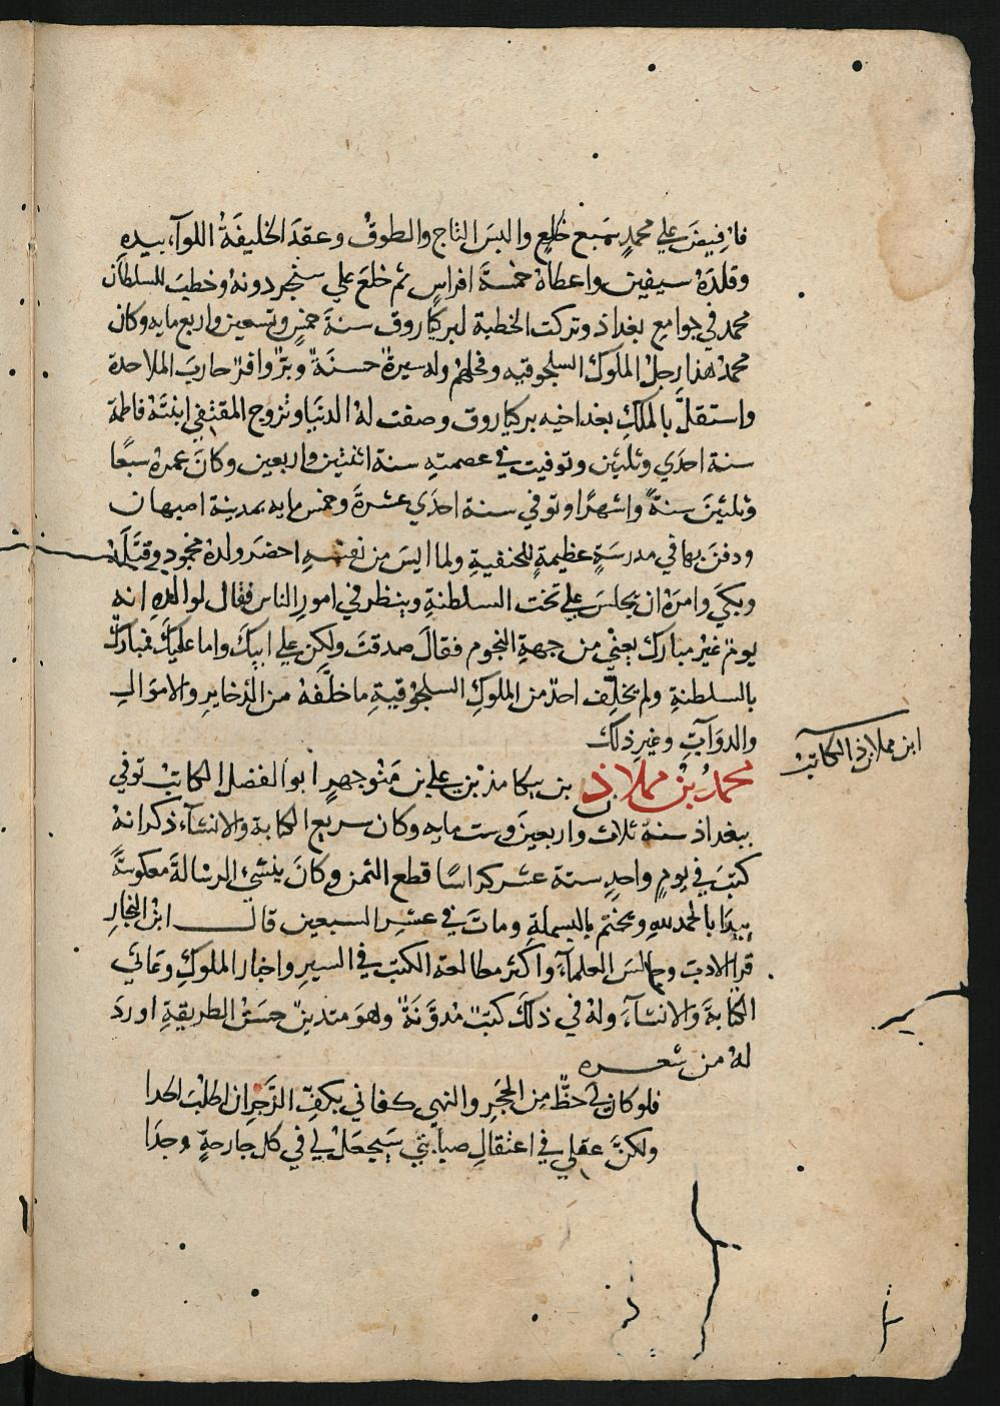 فافيض علي محمدٍ سبع خلعٍ والبس التاج والطوق وعقد الخليفة اللوآء بيده
وقلده سيفين واعطاه خمسة افراس ثم خلع علي سنجر دونه وخطب للسلطان
محمد في جوامع بغداذ وتركت الخطبة لبركياروق سنة خمس وتسعين واربع مايه وكان
محمد هذا رجل الملوك السلجوقيه وفحلهم وله سيرة حسنة وبرّ وافر حارب الملاحدة
واستقلّ بالملك بعد اخيه بركياروق وصفت له الدنيا وتزوج المقتفي ابنته فاطمة
سنة احدي وثلثين وتوفيت في عصمته سنة اثنتين واربعين وكان عمره سبعًا
وثلثين سنةً واشهرًا وتوفي سنة احدي عشرة وخمس مايه بمدينة اصبهان
ودفن بها في مدرسةٍ عظيمةٍ للحنفية ولما ايس من نفسه احضر ولده محمود وقبّله
وبكي وامره ان يجلس علي تخت السلطنة وينظر في امور الناس فقال لوالده انه
يوم غير مبارك يعني من جهة النجوم فقال صدقت ولكن علي ابيك واما عليك فمبارك
بالسلطنة ولم يخلّف احدّ من الملوك السلجوقية ما خلّفه من الذخاير والاموال
والدوآبّ وغير ذلك
ابن مملاذ الكاتب
محمد بن مملاذ بن بن علي بن منوجهر ابو الفضل الكاتب توفي
ببغداذ سنة ثلاث واربعين وست مايه وكان سريع الكتابة والانشآء ذكر انه
كتب في يومٍ واحدٍ ستة عشر كراسًا قطع الثمن وكان ينشيء الرسالة معكوسةً
يبدا بالحمد لله ويختم بالبسملة ومات في عشر السبعين قال ابن النجار
قرا الادب وجالس العلمآء واكثر مطالعة الكتب في السير واخبار الملوك وعاني
الكتابة والانشآء وله في ذلك كتب مدوّنة وهو متدين حسن الطريقة اورد
له من شعره
فلو كان لي حظّ من الحجر والنهي كفاني بكفّ الزجر ان اطلب
ولكنّ عقلي في اعتقال صبابتي سيجعل لي في كل جارحةٍ وجدا